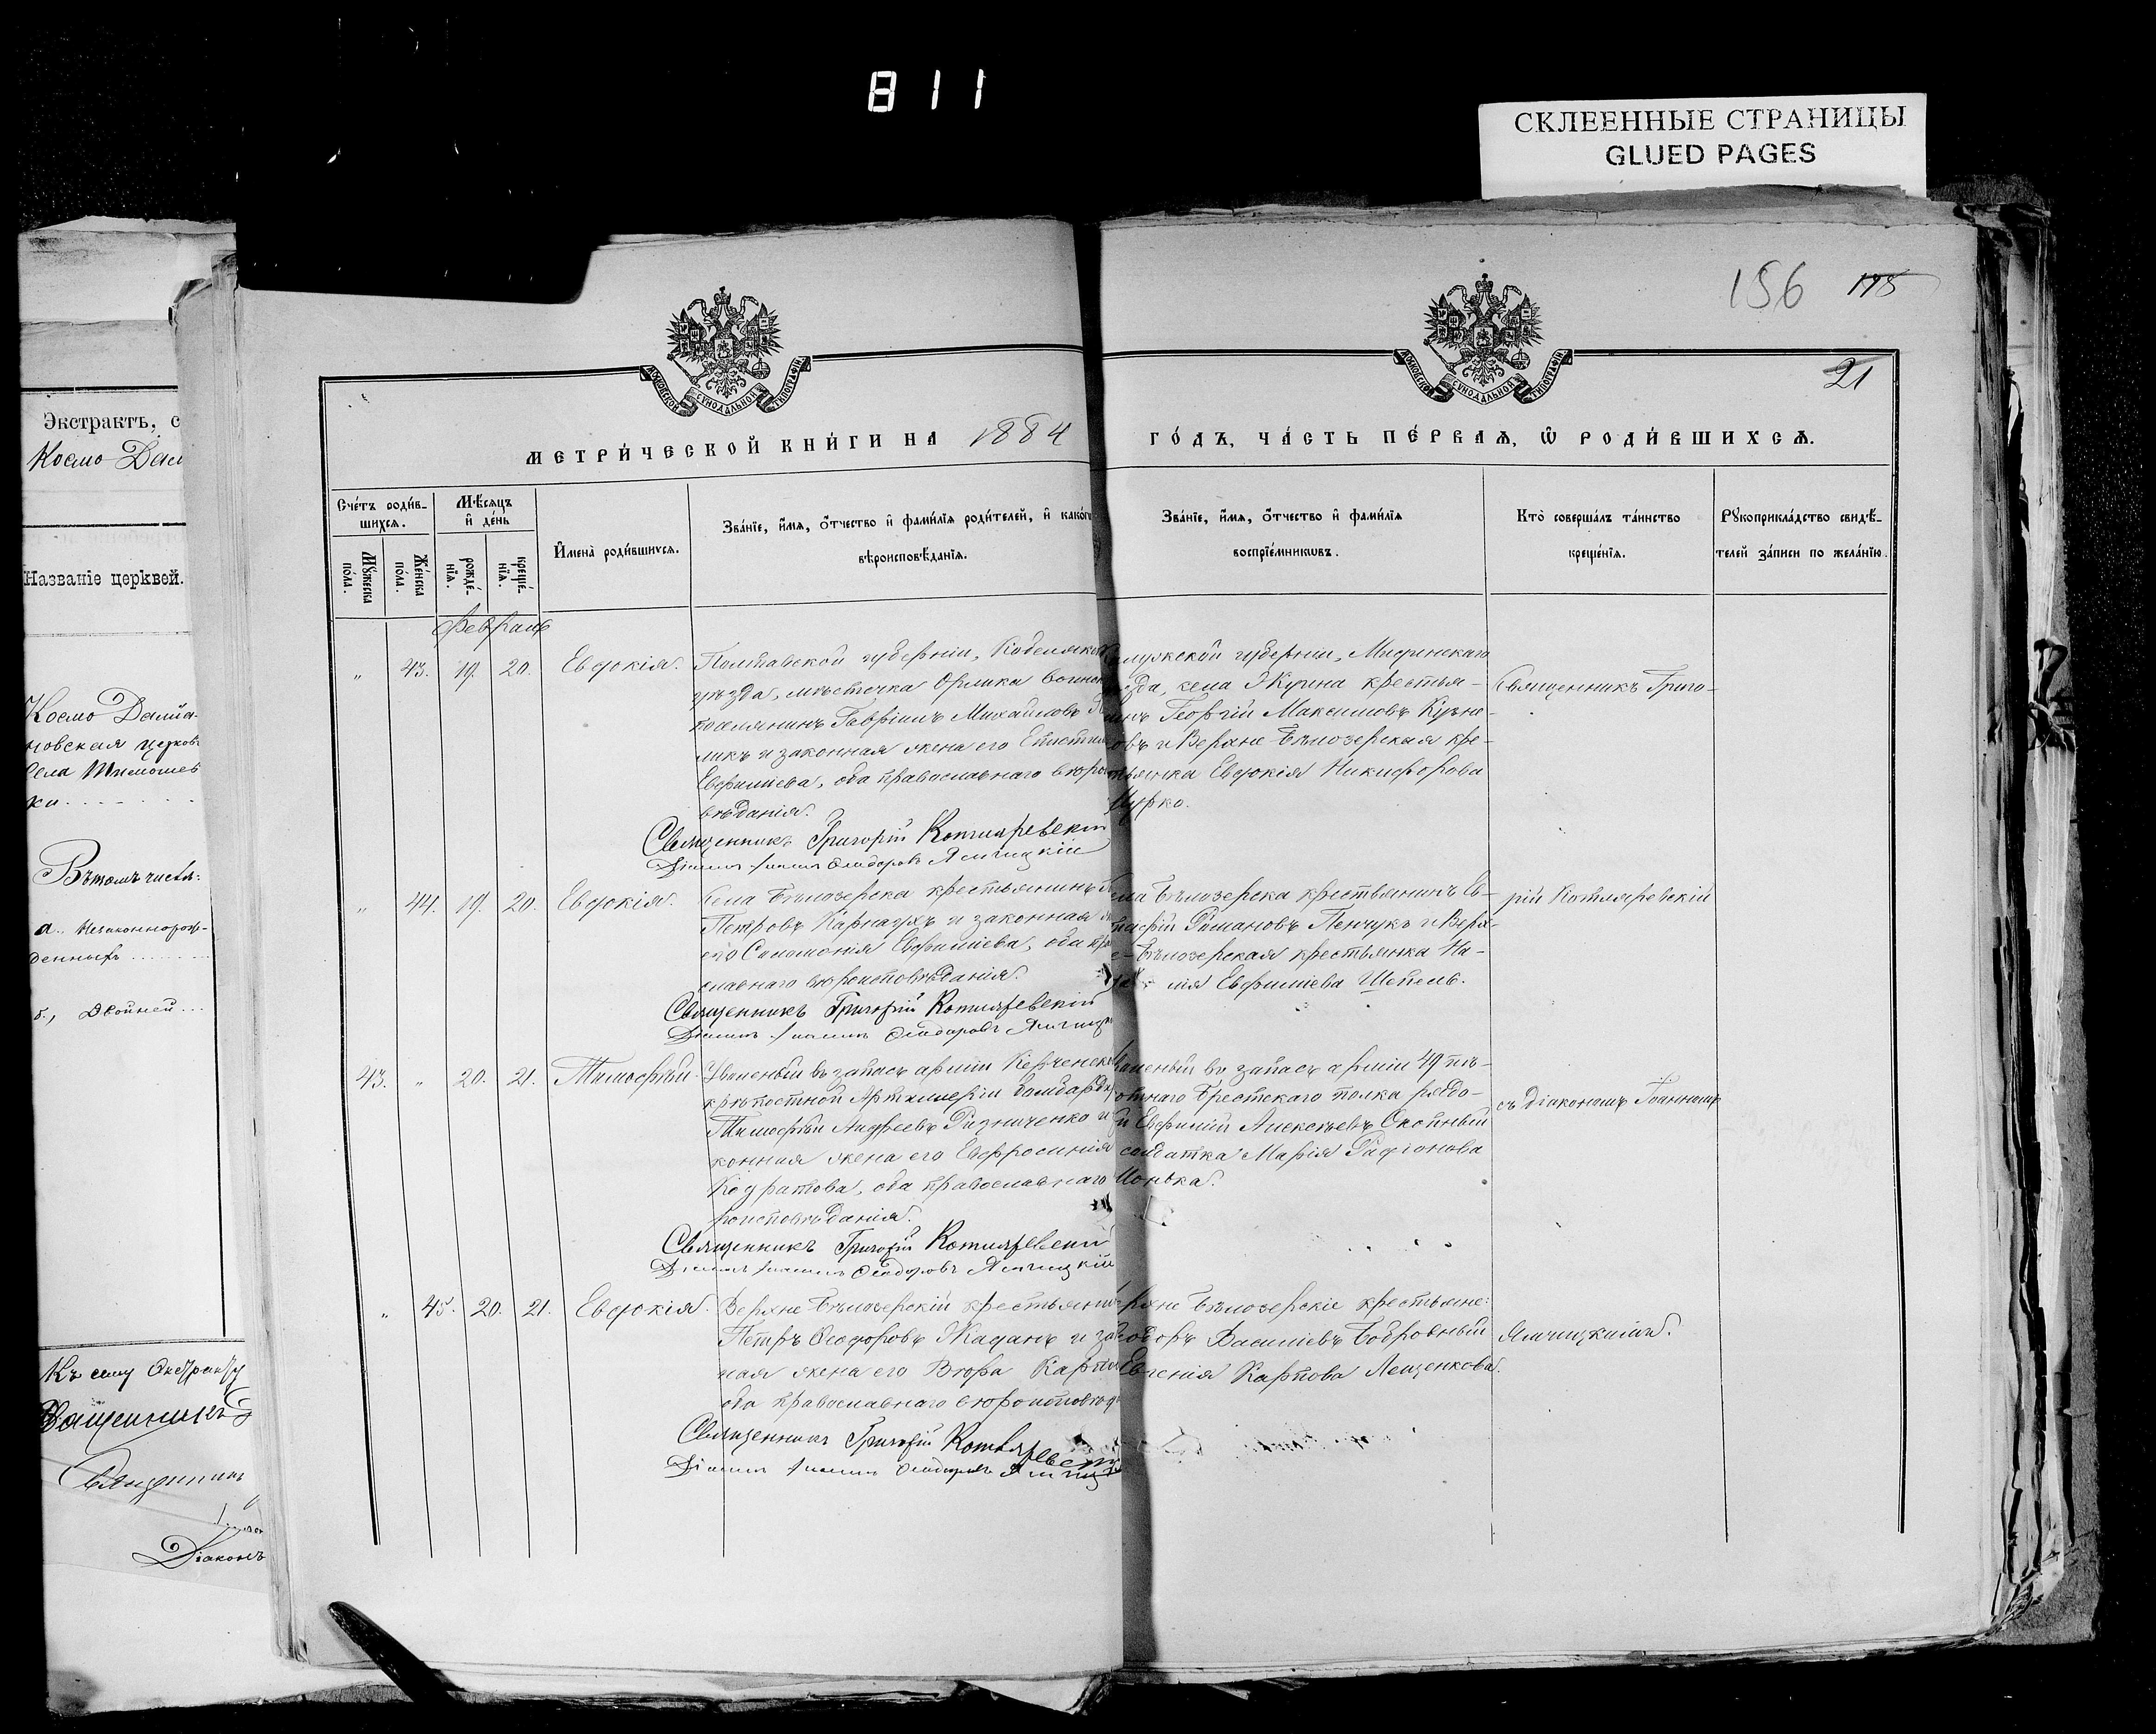 811
СКЛЕЕННЫЕ СТРАНИЦЫ
GLUED PAGES
156 178
21
МОСКОВСКОЙ СѴНОДАЛЬНОЙ ТИПОГРАФІИ
МОСКОВСКОЙ СѴНОДАЛЬНОЙ ТИПОГРАФІИ
Экстрактъ, с
Космо Дам
Названіе церквей.
Космо Даміа-
новская церковь
села Тимошев
ки
Въ томъ числѣ:
а. Незаконнорож-
денныхъ
б., Двойней
Къ сему Экстракту
Священникъ
Діаконъ
МЕТРИ́ЧЕСКОЙ КНИ́ГИ НА 1884 ГО́ДЪ, ЧА́СТЬ ПЕ́РВАѦ, Ѿ РОДИ́ВШИХСѦ.
Сче́тъ роди́в-
шихсѧ.
Мꙋ́жеска
по́ла.
Же́нска
по́ла.
Мѣ́сѧцъ
и҆ де́нь
рожде́-
нїѧ.
креще́-
нїѧ.
И҆мена̀ роди́вшихсѧ.
Зва́нїе, и҆́мѧ, ѻ҆́тчество и҆ фами́лїѧ роди́телей, и҆ како́гѡ
вѣроисповѣ́данїѧ.
Зва́нїе, и҆́мѧ, ѻ҆́тчество и҆ фами́лїѧ
воспрїе́мникѡвъ.
Кто̀ соверша́лъ та́инство
креще́нїѧ.
Рꙋкоприкла́дство свидѣ́-
телей за́писи по жела́нїю.
Февраль
" 43. 19. 20. Евдокія.
Полтавской губерніи, Кобеляк
уѣзда, мѣстечка Орлика воинск
поселянинъ Гавріилъ Михайловъ
никъ и законная жена его Епистим
Евфиміева, оба православнаго вѣро
вѣданія.
Священникъ Григорій Котляревскій
Діаконъ Іоаннъ Ѳеодоровъ Ямницкій
лужской губерніи, Мидинскаго
ѣзда, села Якшина крестья-
инъ Георгій Максимовъ Кузне-
овъ и Верхне-Бѣлозерская кре-
тьянка Евдокія Никифорова
Цурко.
Священникъ Григо-
" 44. 19. 20. Евдокія.
Села Бѣлозерска крестьянинъ
Петровъ Карнаухъ и законная
его Соломонія Евфиміева, оба пра
славнаго вѣроисповѣданія.
Священникъ Григорій Котляревскій
Діаконъ Іоаннъ Ѳеодоровъ Ямницк
ела Бѣлозерска крестьянинъ Ев-
Романовъ Пенчукъ и Верх-
е-Бѣлозерская крестьянка На-
лія Евфиміева Шепель.
рій Котляревскій
43. " 20. 21. Тимофѣй.
Уволеный въ запасъ арміи Керченск
крѣпостной Артиллеріи бомбарди
Тимофѣй Андреевъ Ризниченко и
конная жена его Евфросинія
Кодратова, оба православнаго
роисповѣданія.
Священникъ Григорій Котляревскій
Діаконъ Іоаннъ Ѳеодоровъ Ямницкій
воленый въ запасъ арміи 49 пѣ-
отнаго Брестскаго полка рядо-
й Евфимій Алексѣевъ Окопный
солдатка Марія Родіонова
Цонька.
съ діакономъ Іоанномъ
" 45. 20. 21. Евдокія.
Верхне-Бѣлозерскій крестьянин
Петръ Ѳеодоровъ Жаданъ и зак
ная жена его Вѣра Карпо
оба православнаго вѣроисповѣд
Священникъ Григорій Котляревскій
Діаконъ Іоаннъ Ѳеодоровъ Ямницк
рхне-Бѣлозерскіе крестьяне:
еодоръ Василіевъ Бобровный
Евгенія Карпова Лещенкова.
Ямницкимъ.